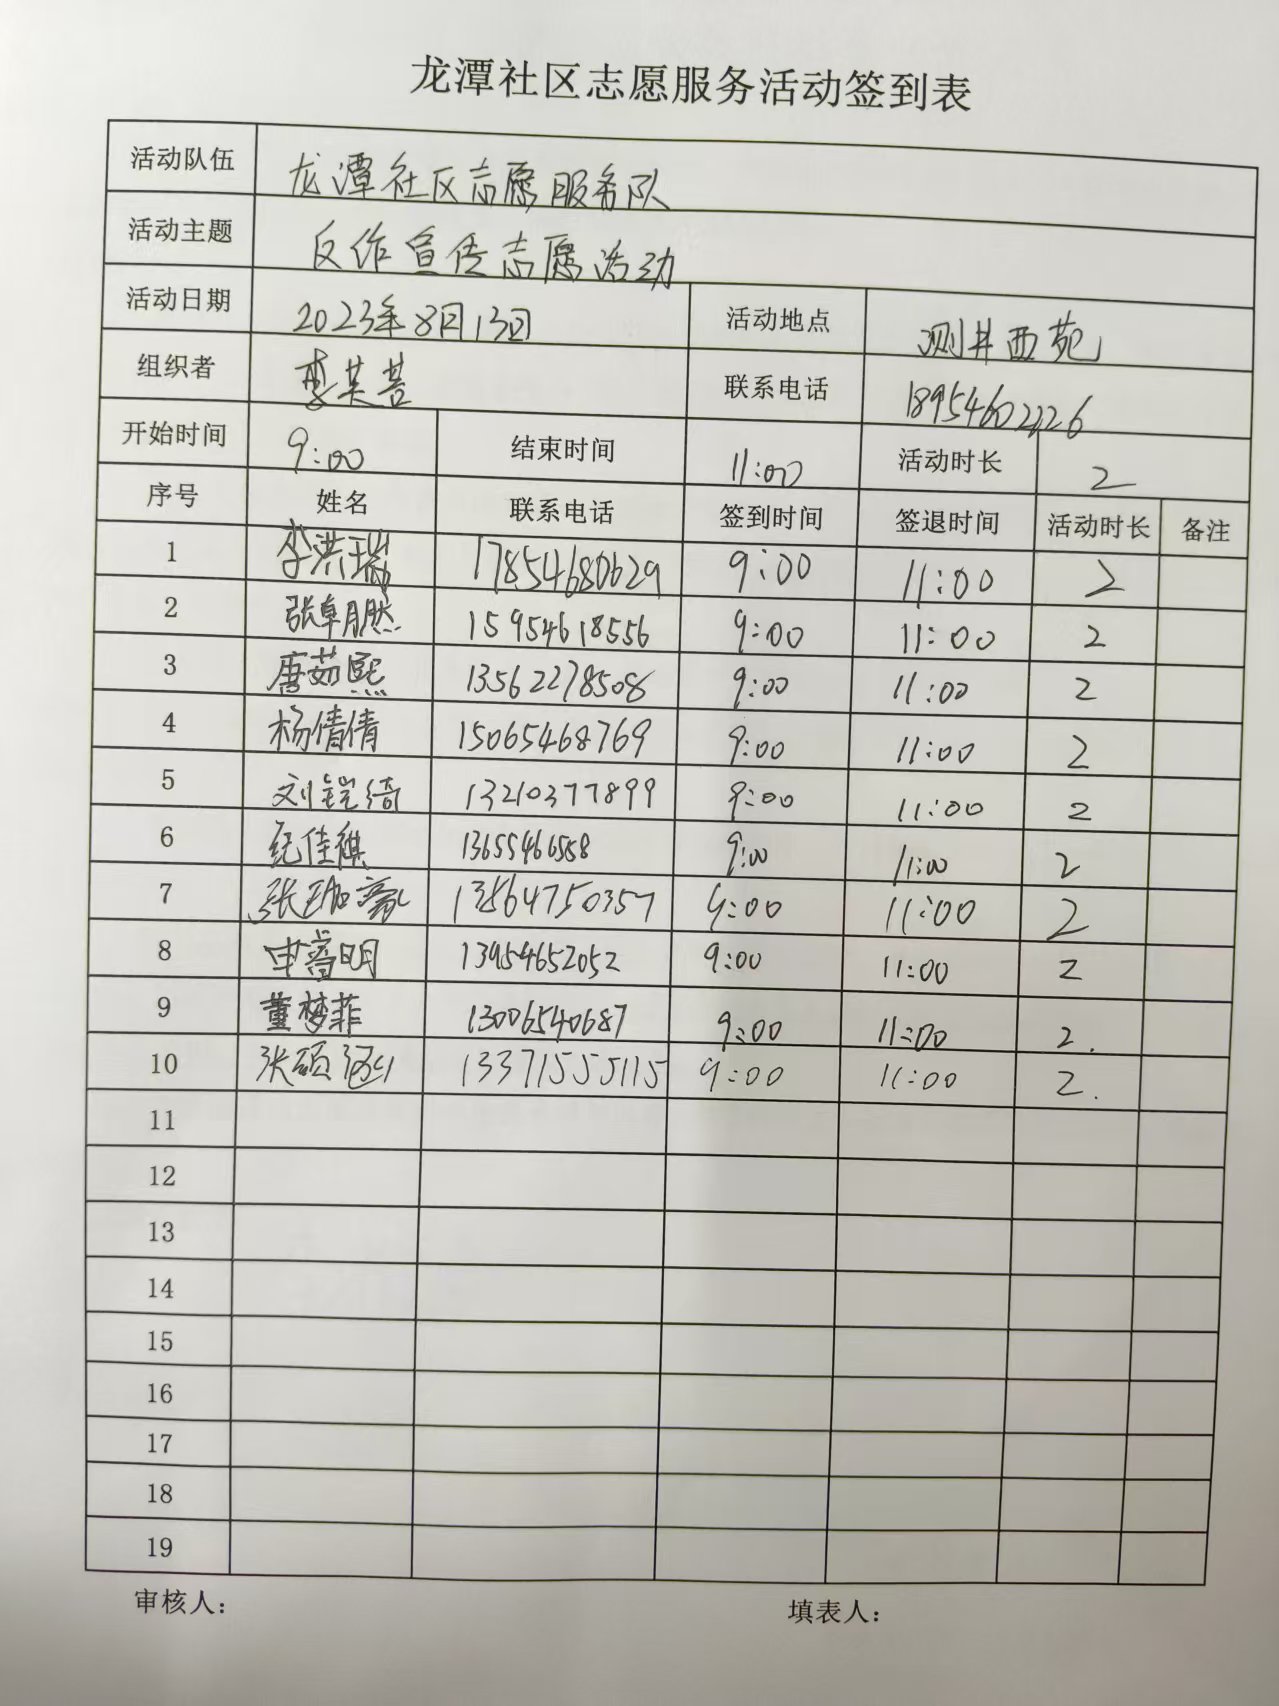 龙潭社区志愿服务活动签到表
活动队伍 龙潭社区志愿服务队
活动主题 反诈宣传志愿活动
活动日期 2023年8月13日 活动地点 测井西苑
组织者 联系电话 18954602226
开始时间 9:00 结束时间 11:00 活动时长 2
序号 姓名 联系电话 签到时间 签退时间 活动时长 备注
1 李洪瑞 17854680629 9:00 11:00 2
2 张卓朋然 15954618556 9:00 11:00 2
3 唐茹熙 13562278508 9:00 11:00 2
4 杨倩倩 15065468769 9:00 11:00 2
5 刘铠绮 13210377899 9:00 11:00 2
6 纪佳祺 13655466558 9:00 11:00 2
7 13564750357 9:00 11:00 2
8 13954652052 9:00 11:00 2
9 董梦菲 13006540687 9:00 11:00 2.
10 张硕涵 13371555115 9:00 11:00 2.
11
12
13
14
15
16
17
18
19
审核人： 填表人：